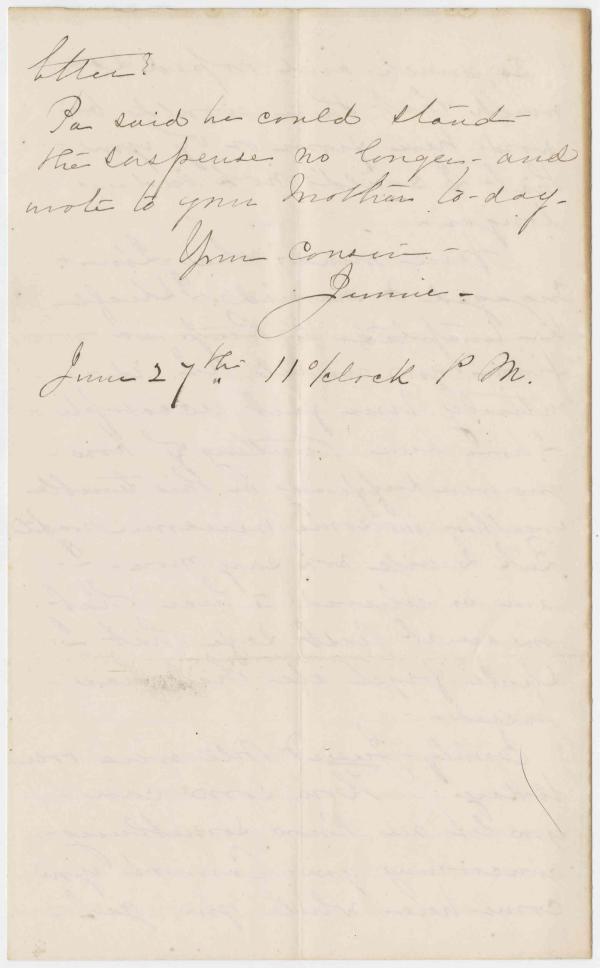 letter?
Pa said he could stand
the suspense no longer - and
wrote to your Mother to-day -
Your cousin -
Jennie -
June 27th 11 o'clock P M.